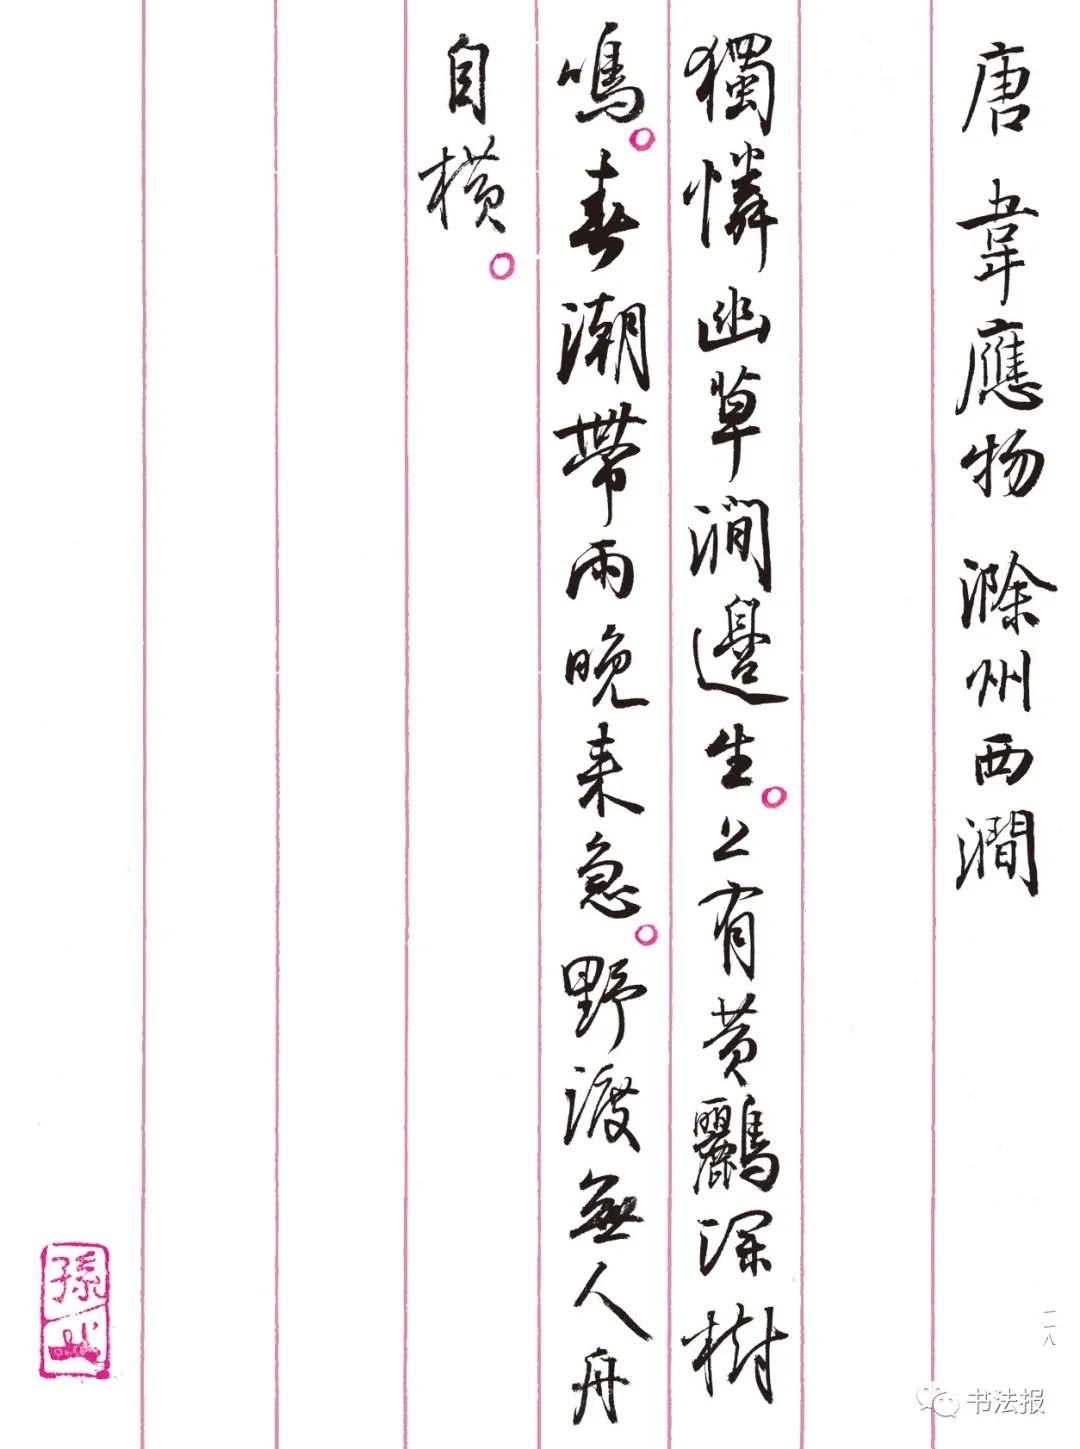 唐 韋應物 滁州西澗
獨憐幽草澗邊生。上有黄鸝深樹
鳴。春潮帶雨晚来急。野渡無人舟
自横。
孫
一一八
书法报